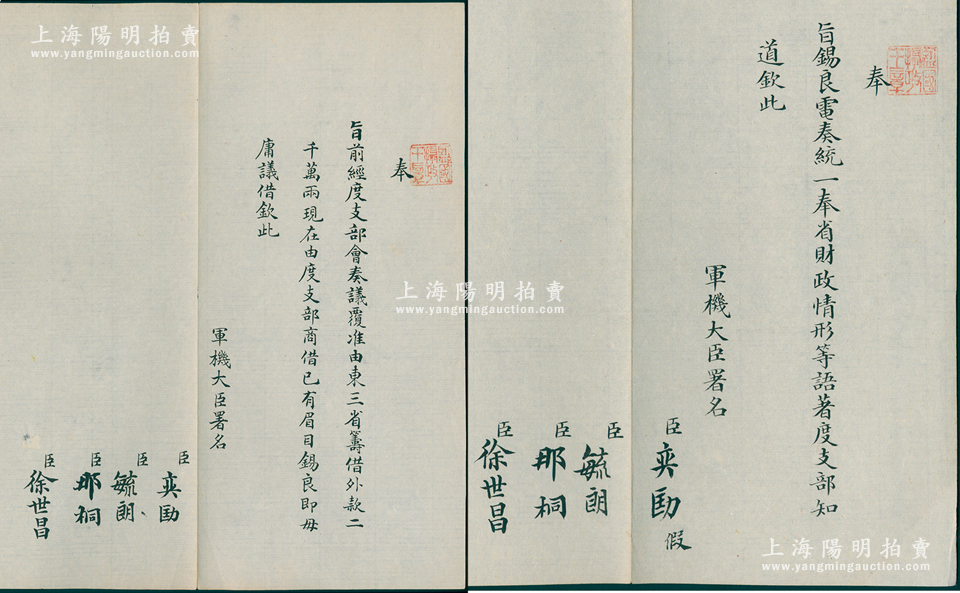 奉
旨錫良電奏統一奉省財政情形等語著度支部知
道欽此
軍機大臣署名
臣奕劻假
臣毓朗
臣那桐
臣徐世昌
奉
旨前經度支部會奏議覆准由東三省籌借外款二
千萬兩現在由度支部商借已有眉目錫良即毋
庸議借欽此
軍機大臣署名
臣奕劻
臣毓朗
臣那桐
臣徐世昌
上海陽明拍賣
www.yangmingauction.com
上海陽明拍賣
www.yangmingauction.com
上海陽明拍賣
www.yangmingauction.com